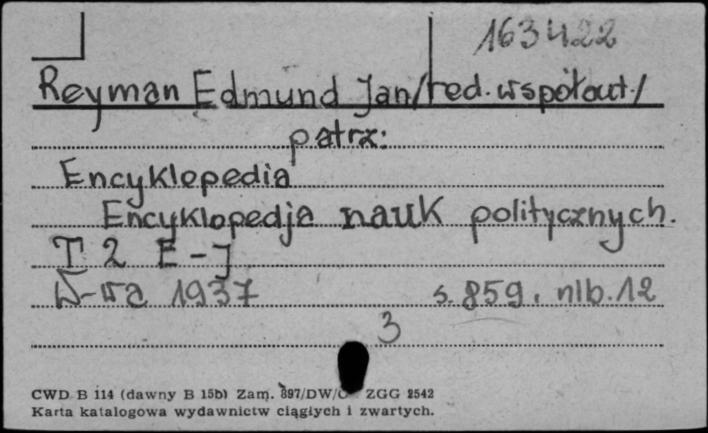 163422
Reyman Edmund Jan/red. współaut./
patrz:
Encyklopedia
Encyklopedja nauk politycznych.
T 2 E-J
W-wa 1937 s. 859, nlb. 12
3
CWD B 114 (dawny B 15b) Zam. 897/DW/ ZGG 2542
Karta katalogowa wydawnictw ciągłych i zwartych.